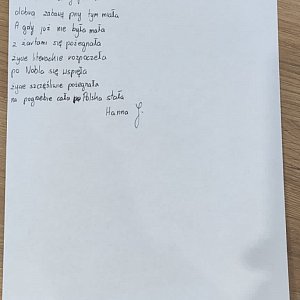 dobra zabawę przy tym miała
A gdy już nie była mała
z żartami się pożegnała
życie literackie rozpoczęła
po Nobla się wspięła
życie szczęśliwie pożegnała
na pogrzebie cała Polska stała
Hanna J.